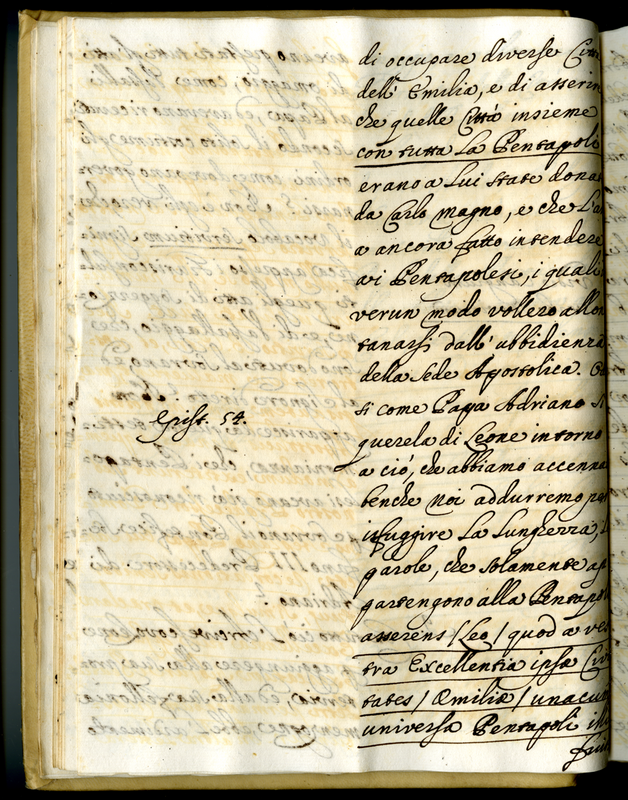 di occupare diverse
dell' Emilia, e di asserire
che quelle Cittá insieme
con tutta La Pentapoli
erano a Lui state dona
da Carlo magno, e che L'a
a ancora fatto intendere
ai Pentapolesi, i quali
verun modo vollero allon
tanarsi dall' ubbidienza
della Sede Apostolica.
si come Papa Adriano si
querela di Leone intorno
a ció, che abbiamo accenna
benche noi addurremo per
isfuggire La Lunghezza,
parole, che solamente ap
partengono alla Pentapol
asserens / Leo / quod a ves
tra Excellentia ipsæ Civi
tates / Æmiliæ / unacum
universa Pentapoli illi
fuis
Epist. 54.